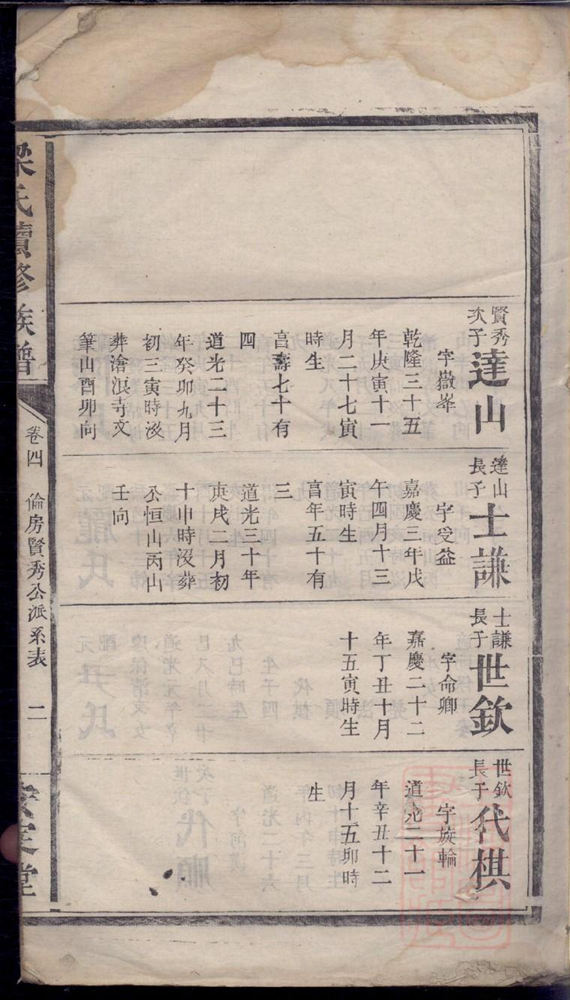 賢秀次子達山
字嶽峯
乾隆三十五
年庚寅十一
月二十七寅
時生
享壽七十有
四
道光二十三
年癸卯九月
初三寅時沒
葬滄浪寺文
筆山酉卯向
達山長子士謙
字受益
嘉慶三年戊
午四月十三
寅時生
享年五十有
三
道光三十年
庚戌二月初
十申時沒葬
仝恒山丙山
壬向
士謙長子世欽
字命卿
嘉慶二十二
年丁丑十月
十五寅時生
世欽長子代棋
字族輪
道光二十一
年辛丑十二
月十五卯時
生
梁氏續修族譜
卷四
倫房賢秀公派系表
二
堂